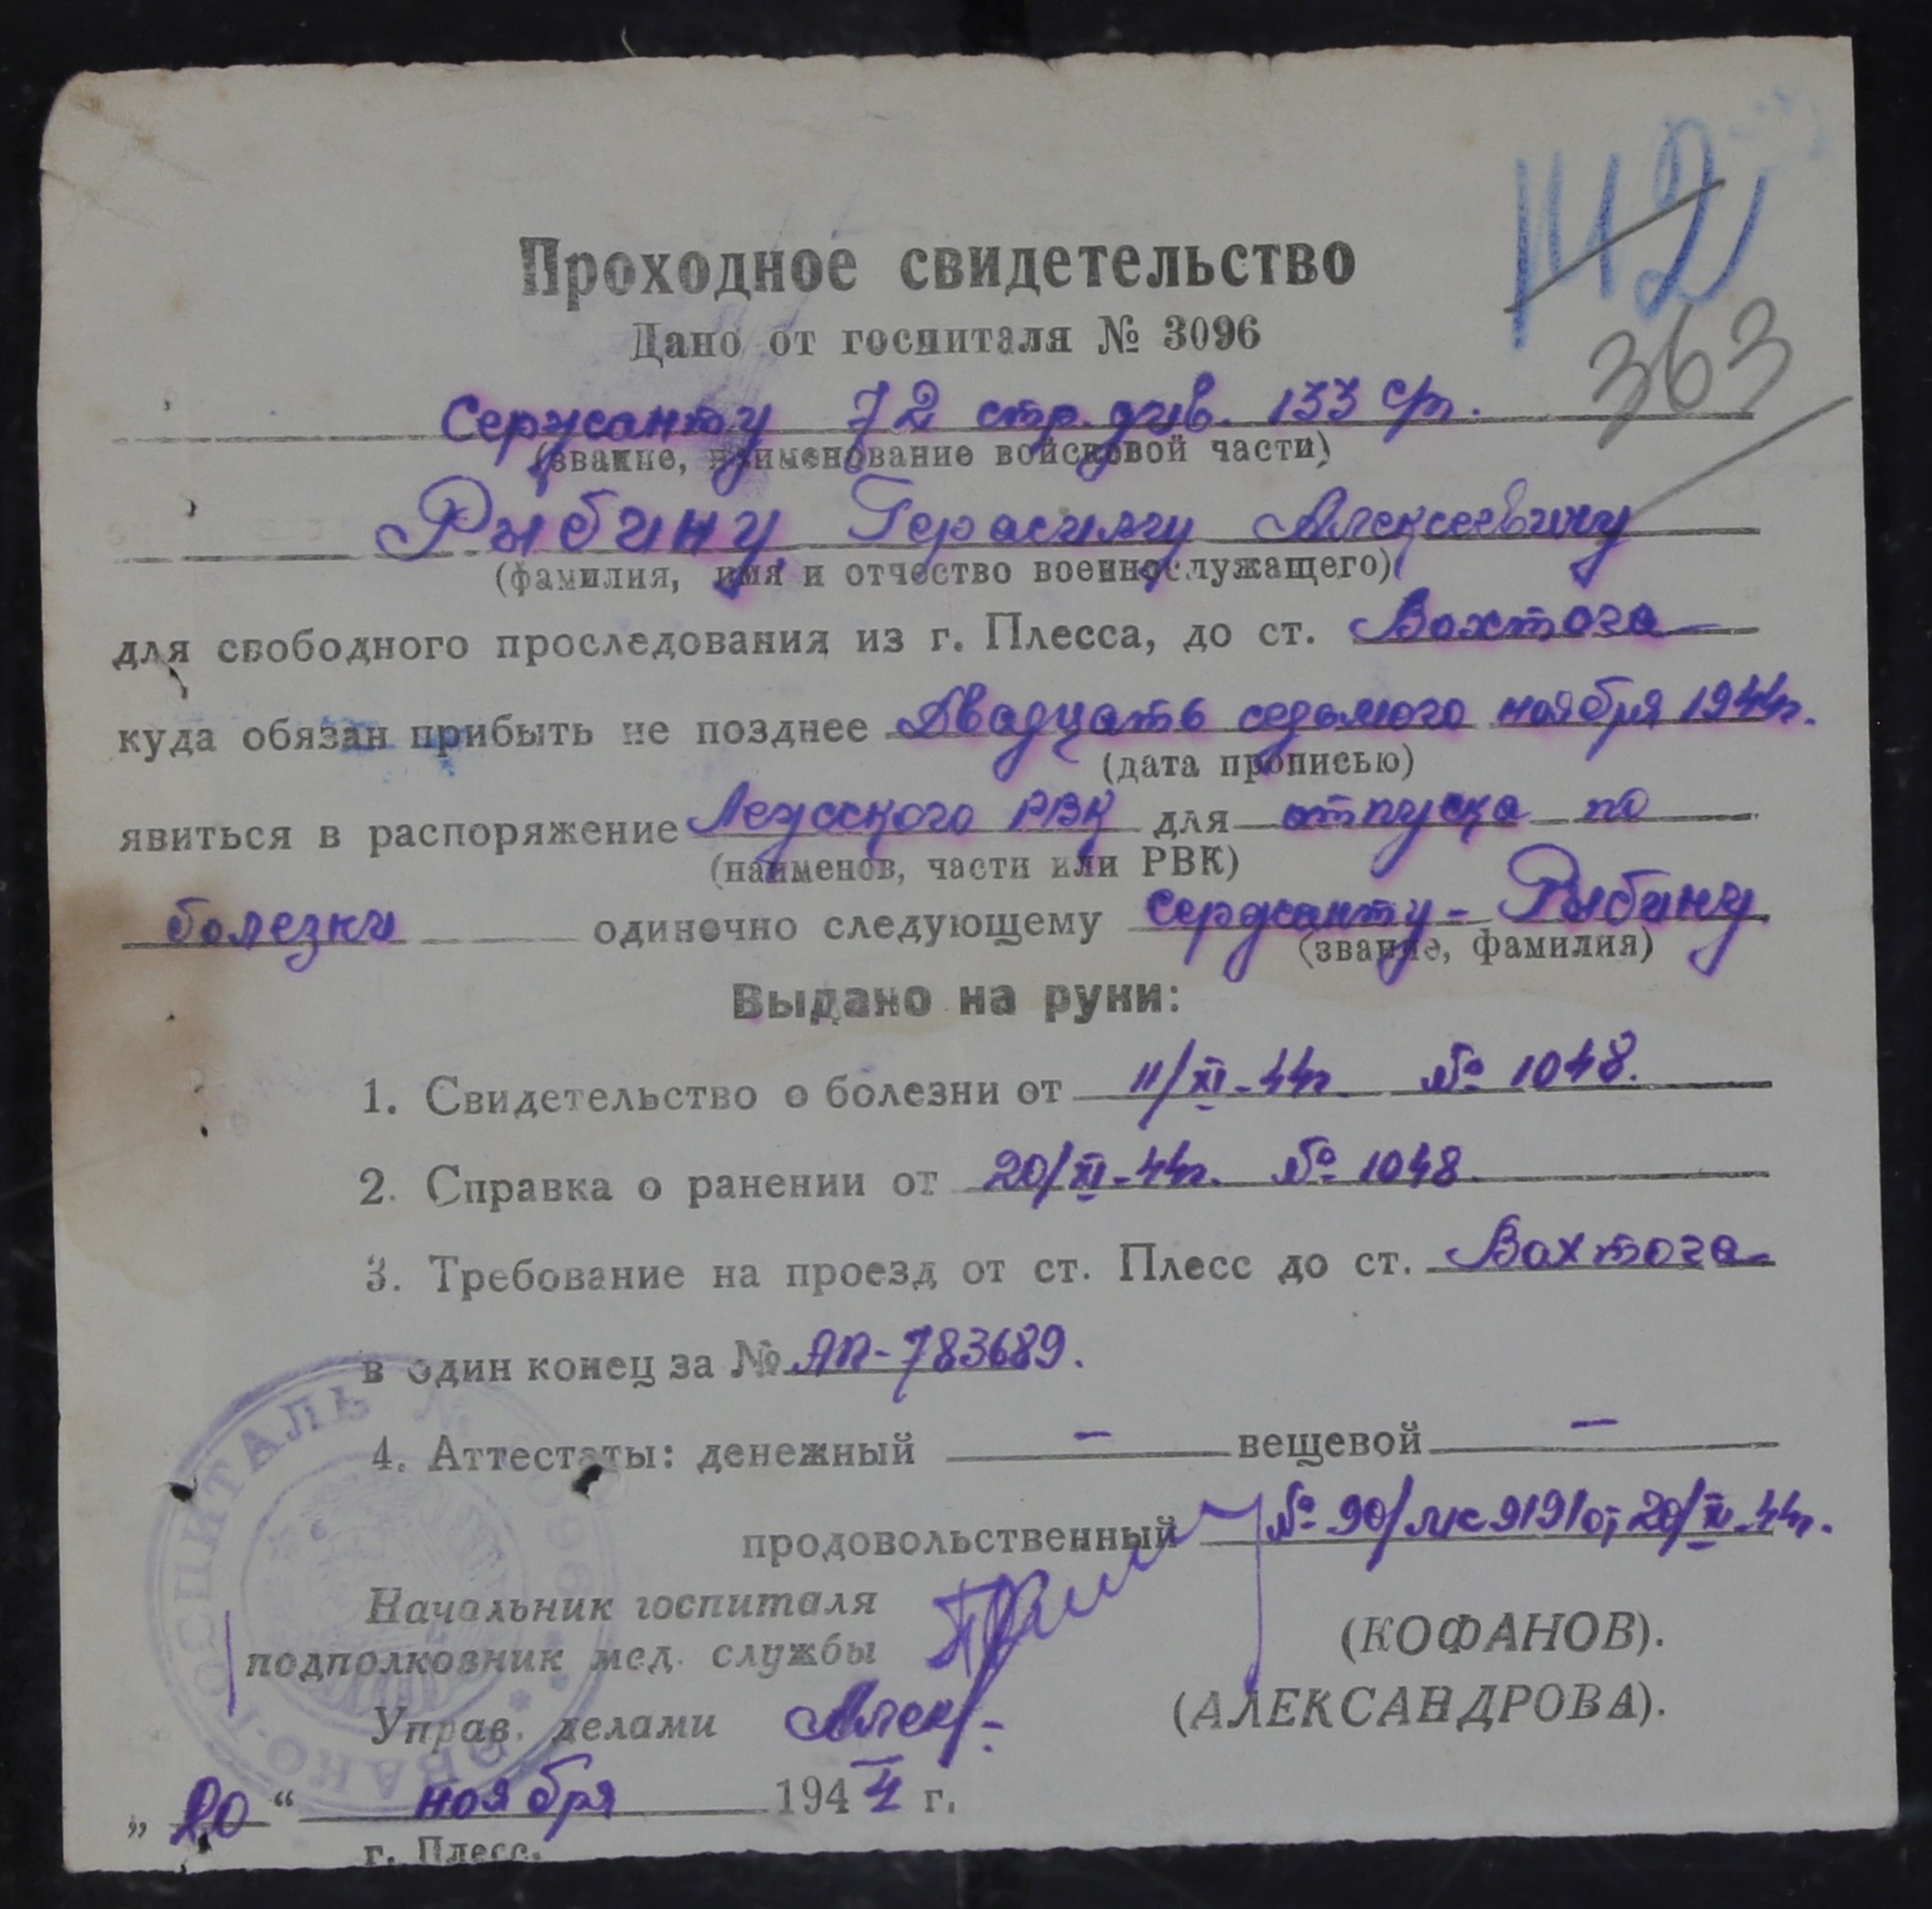 112
363
Проходное свидетельство
Дано от госпиталя № 3096
Сержанту 72 стр. див. 133 сп.
(звание, наименование войсковой части)
Рыбину Герасиму Алексеевичу
(фамилия, имя и отчество военнослужащего)
для свободного проследования из г. Плесса, до ст. Вохтога
куда обязан прибыть не позднее Двадцать седьмого ноября 1944г.
(дата прописью)
явиться в распоряжение Лежского РВК для отпуска по
(наименов, части или РВК)
болезни одиночно следующему сержанту - Рыбину
(звание, фамилия)
Выдано на руки:
1. Свидетельство о болезни от 11/XI-44г. № 1048.
2. Справка о ранении от 20/XI-44г. № 1048.
3. Требование на проезд от ст. Плесс до ст. Вохтога
в один конец за № АП-783689.
4. Аттестаты: денежный — вещевой —
продовольственный № 90/ 9191 от 20/XI-44г.
Начальник госпиталя
подполковник мед. службы (КОФАНОВ).
Управ. делами Алек (АЛЕКСАНДРОВА).
„20“ ноября 1944 г.
г. Плесс.
ГОСПИТАЛЬ № 3096